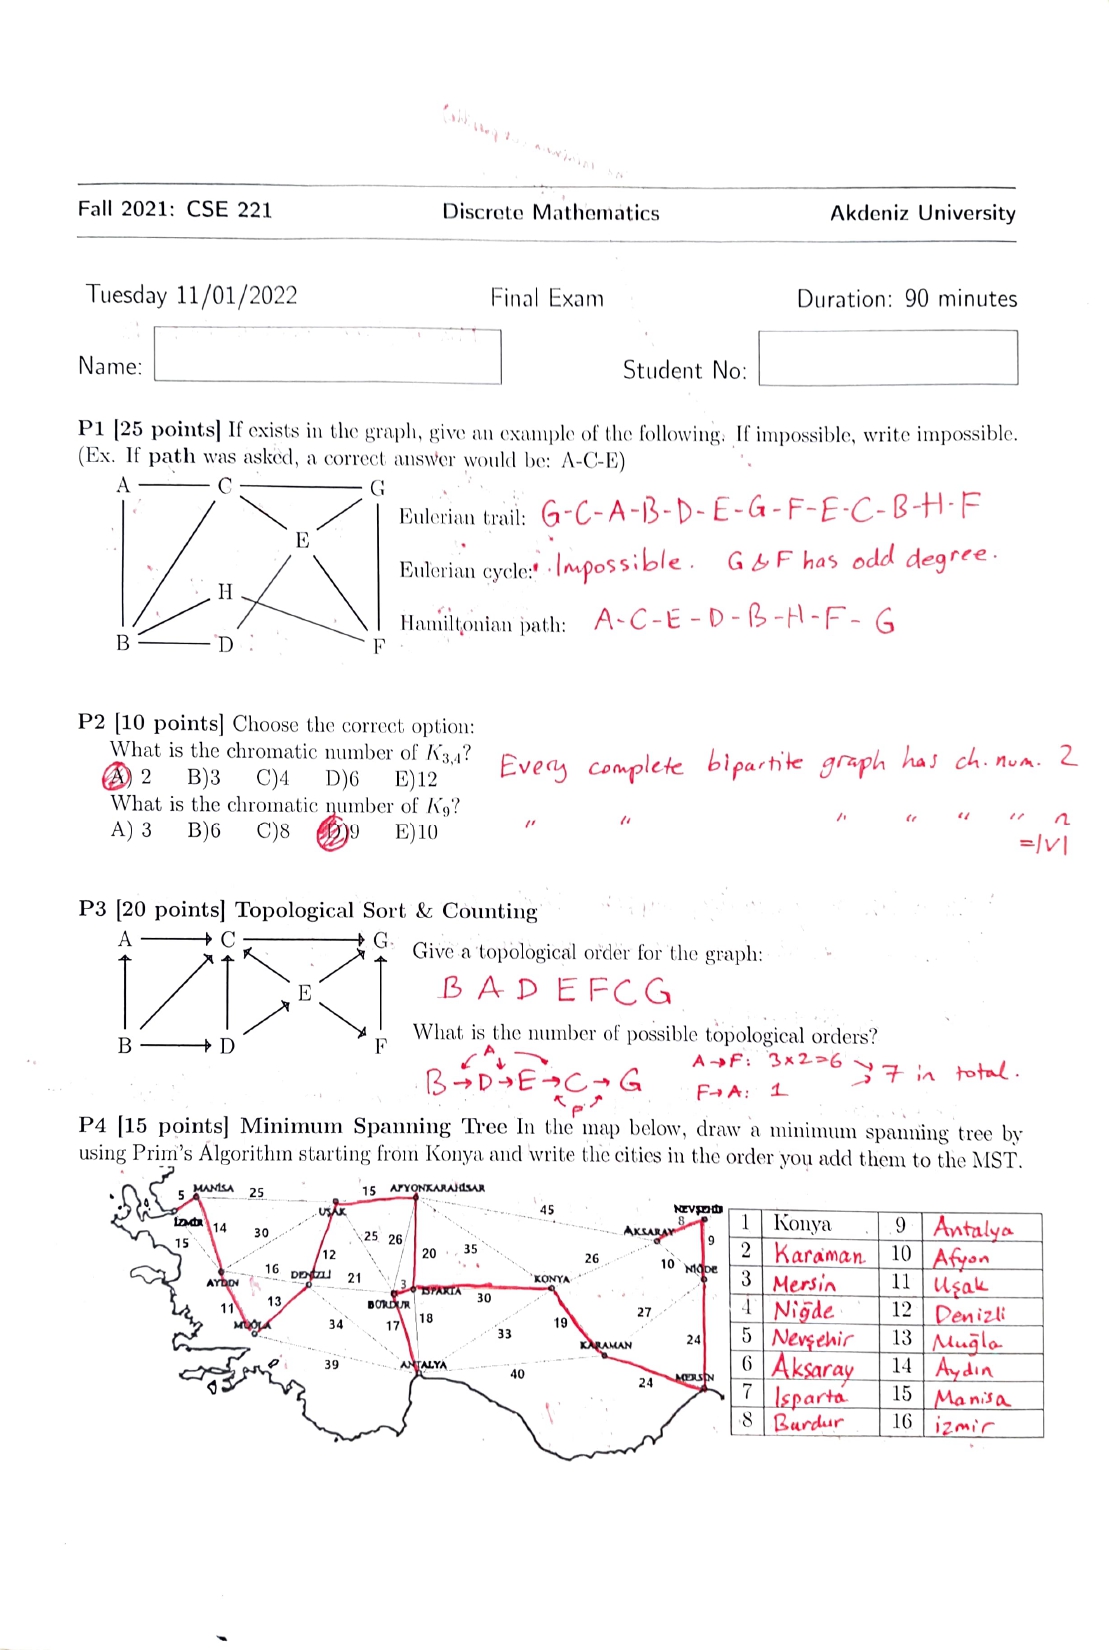 Fall 2021: CSE 221 Discrete Mathematics Akdeniz University
Tuesday 11/01/2022 Final Exam Duration: 90 minutes
Name: Student No:
P1 [25 points] If exists in the graph, give an example of the following. If impossible, write impossible.
(Ex. If path was asked, a correct answer would be: A-C-E)
A C G
E
H
B D F
Eulerian trail: G-C-A-B-D-E-G-F-E-C-B-H-F
Eulerian cycle: Impossible. G & F has odd degree.
Hamiltonian path: A-C-E-D-B-H-F-G
P2 [10 points] Choose the correct option:
What is the chromatic number of K3,4?
A) 2 B)3 C)4 D)6 E)12
Every complete bipartite graph has ch. num. 2
What is the chromatic number of K9?
A) 3 B)6 C)8 D)9 E)10
" " " " " " n
=|V|
P3 [20 points] Topological Sort & Counting
A C G
E
B D F
Give a topological order for the graph:
B A D E F C G
What is the number of possible topological orders?
A
B→D→E→C→G
F
A→F: 3x2=6
F→A: 1
7 in total.
P4 [15 points] Minimum Spanning Tree In the map below, draw a minimum spanning tree by
using Prim's Algorithm starting from Konya and write the cities in the order you add them to the MST.
5 MANİSA 25 15 AFYONKARAHİSAR
İZMİR 14 30 UŞAK 25 26 45 NEVŞEHİR
15 AKSARAY 8 9
12 20 35 26 10 NİĞDE
AYDIN 16 DENİZLİ 21 3 ISPARTA 30 KONYA
11 13 BURDUR 18 27
MUĞLA 34 17 33 19 24
39 ANTALYA 40 KARAMAN 24 MERSİN
1 Konya 9 Antalya
2 Karaman 10 Afyon
3 Mersin 11 Uşak
4 Niğde 12 Denizli
5 Nevşehir 13 Muğla
6 Aksaray 14 Aydın
7 Isparta 15 Manisa
8 Burdur 16 izmir